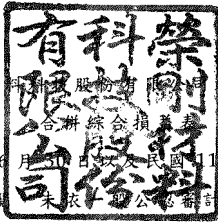 榮剛材料
科技股份
有限公司
料科技股份有限公司
合併綜合損益表
6月30日以及民國11
未依一般公認審計